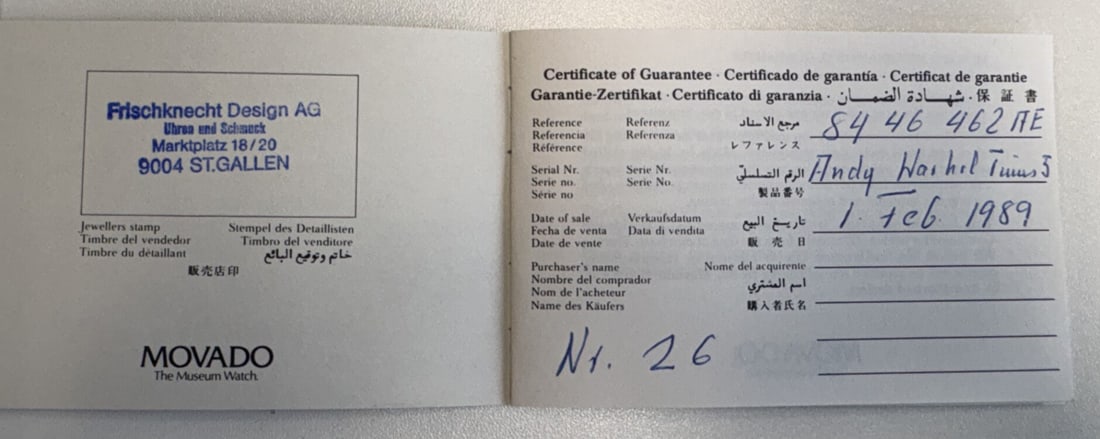 Frischknecht Design AG
Uhren und Schmuck
Marktplatz 18/20
9004 ST.GALLEN
Jewellers stamp Stempel des Detaillisten
Timbre del vendedor Timbro del venditore
Timbre du détaillant خاتم وتوقيع البائع
販売店印
MOVADO
The Museum Watch.
Certificate of Guarantee · Certificado de garantía · Certificat de garantie
Garantie-Zertifikat · Certificato di garanzia · شهادة الضمان · 保証書
Reference Referenz مرجع الاسناد 84 46 462 AE
Referencia Referenza レファレンス
Référence
Serial Nr. Serie Nr. الرقم التسلسلي Andy Warhol Times 5
Serie no. Serie No. 製品番号
Série no
Date of sale Verkaufsdatum تاريخ البيع 1. Feb. 1989
Fecha de venta Data di vendita 販売日
Date de vente
Purchaser's name Nome del acquirente
Nombre del comprador اسم المشتري
Nom de l'acheteur
Name des Käufers 購入者氏名
Nr. 26